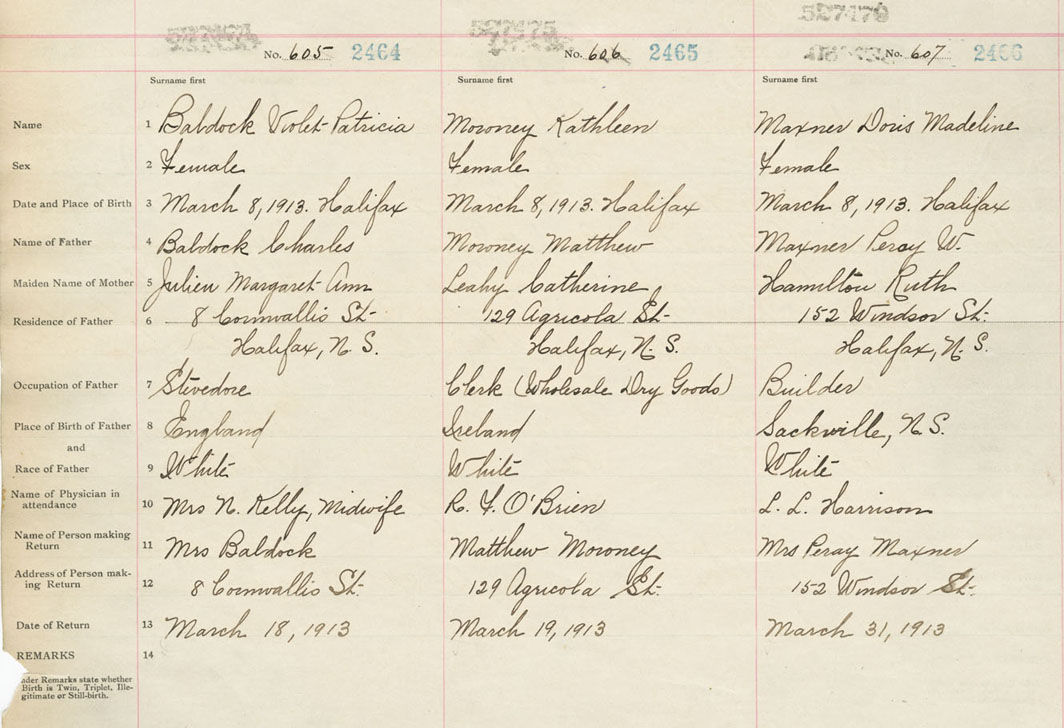 527479
No. 605 2464 No. 606 2465 No. 607 2466
Surname first Surname first Surname first
Name 1 Baldock Violet Patricia Mooney Kathleen Maxner Doris Madeline
Sex 2 Female Female Female
Date and Place of Birth 3 March 8, 1913. Halifax March 8, 1913. Halifax March 8, 1913. Halifax
Name of Father 4 Baldock Charles Mooney Matthew Maxner Percy W.
Maiden Name of Mother 5 Julien Margaret Ann Leahy Catherine Hamilton Ruth
Residence of Father 6 8 Cornwallis St. 129 Agricola St. 152 Windsor St.
Halifax, N.S. Halifax, N.S. Halifax, N.S.
Occupation of Father 7 Stevedore Clerk (Wholesale Dry Goods) Builder
Place of Birth of Father 8 England Ireland Sackville, N.S.
and
Race of Father 9 White White White
Name of Physician in
attendance 10 Mrs N. Kelly, Midwife R. F. O'Brien L. L. Harrison
Name of Person making
Return 11 Mrs Baldock Matthew Mooney Mrs Percy Maxner
Address of Person mak-
ing Return 12 8 Cornwallis St. 129 Agricola St. 152 Windsor St.
Date of Return 13 March 18, 1913 March 19, 1913 March 31, 1913
REMARKS 14
Remarks state whether
Birth is Twin, Triplet, Ille-
gitimate or Still-birth.